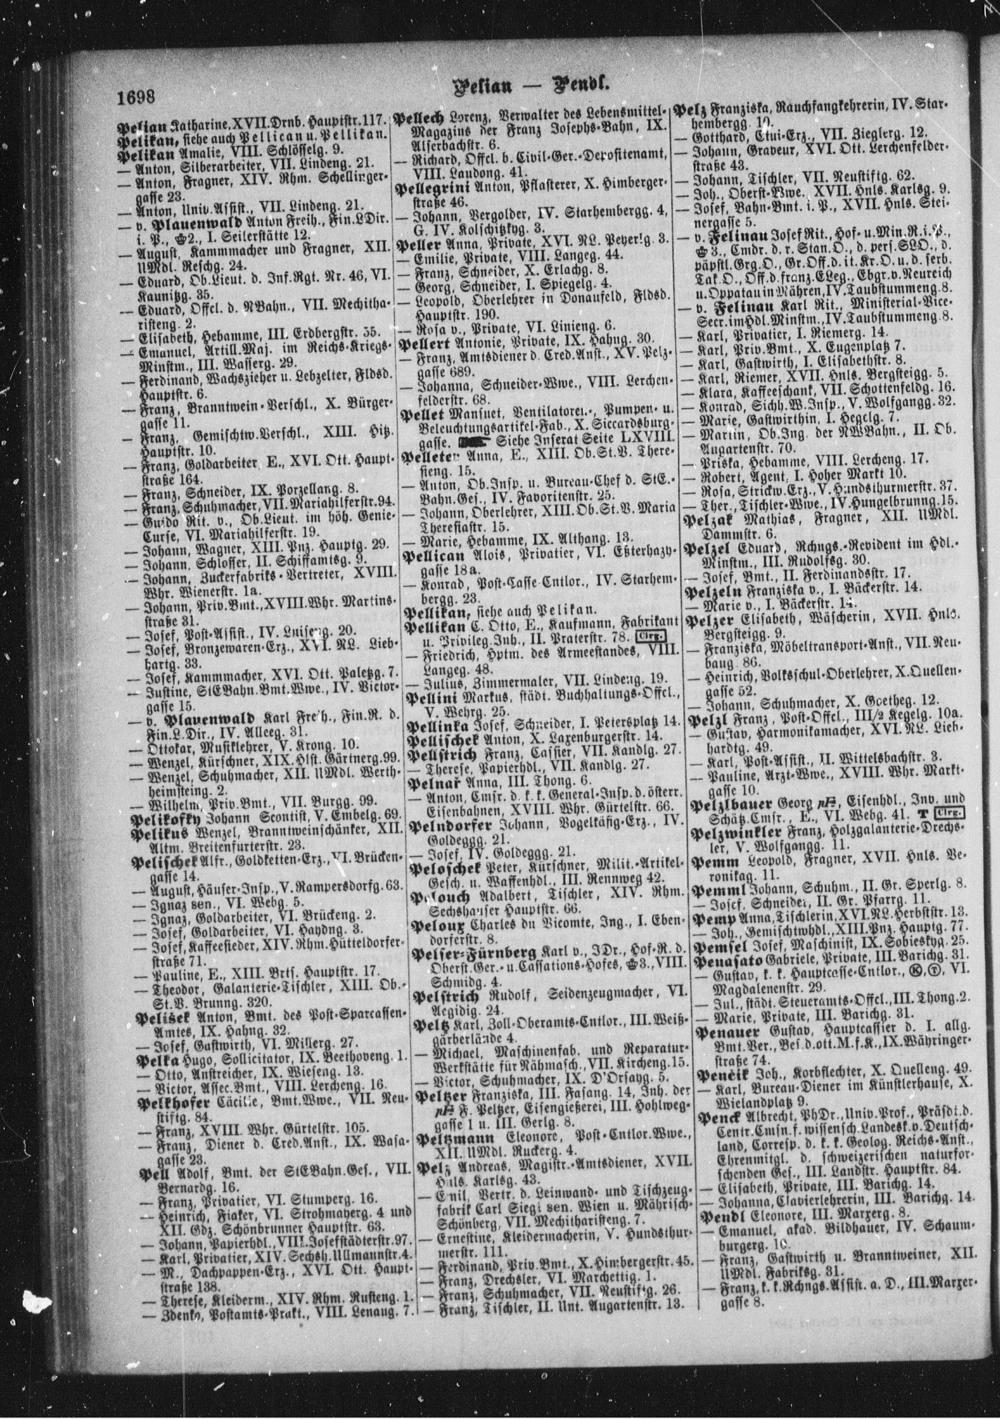 1698
Pelian — Pendl.
Pelian Katharine, XVII. Drnb. Hauptstr. 117.
Pelikan, siehe auch Pellican u. Pellikan.
Pelikan Amalie, VIII. Schlösselg. 9.
— Anton, Silberarbeiter, VII. Lindeng. 21.
— Anton, Fragner, XIV. Rhm. Schellinger-
gasse 23.
— Anton, Univ. Assist., VII. Lindeng. 21.
— v. Plauenwald Anton Freih., Fin.L.Dir.
i. P., 2., I. Seilerstätte 12.
— August, Kammmacher und Fragner, XII.
UMdl. Reschg. 24.
— Eduard, Ob.Lieut. d. Inf.Rgt. Nr. 46, VI.
Kaunitzg. 35.
— Eduard, Offcl. d. NBahn., VII. Mechitha-
risteng. 2.
— Elisabeth, Hebamme, III. Erdbergstr. 35.
— Emanuel, Artill.Maj. im Reichs-Kriegs-
Minstm., III. Wasserg. 29.
— Ferdinand, Wachszieher u. Lebzelter, Fldsd.
Hauptstr. 6.
— Franz, Branntwein-Verschl., X. Bürger-
gasse 11.
— Franz, Gemischtw.Verschl., XIII. Hitz.
Hauptstr. 10.
— Franz, Goldarbeiter, E., XVI. Ott. Haupt-
straße 164.
— Franz, Schneider, IX. Porzellang. 8.
— Franz, Schuhmacher, VII. Mariahilferstr. 94.
— Guido Rit. v., Ob.Lieut. im höh. Genie-
Curse, VI. Mariahilferstr. 19.
— Johann, Wagner, XIII. Pnz. Hauptg. 29.
— Johann, Schlosser, II. Schiffamtsg. 9.
— Johann, Zuckerfabriks-Vertreter, XVIII.
Whr. Wienerstr. 1a.
— Johann, Priv.Bmt., XVIII. Whr. Martins-
straße 31.
— Josef, Post-Assist., IV. Luiseng. 20.
— Josef, Bronzewaren-Erz., XVI. NL. Lieb-
hartg. 33.
— Josef, Kammmacher, XVI. Ott. Paletzg. 7.
— Justine, StEBahn.Bmt.Wwe., IV. Victor-
gasse 15.
— v. Plauenwald Karl Freih., Fin.R. d.
Fin.L.Dir., IV. Alleeg. 31.
— Ottokar, Musiklehrer, V. Krong. 10.
— Wenzel, Kürschner, XIX. Hlst. Gärtnerg. 99.
— Wenzel, Schuhmacher, XII. UMdl. Werth-
heimsteing. 2.
— Wilhelm, Priv.Bmt., VII. Burgg. 99.
Pelikofky Johann Scontist, V. Embelg. 69.
Pelikus Wenzel, Branntweinschänker, XII.
Altm. Breitenfurterstr. 23.
Pelischek Alfr., Goldketten-Erz., VI. Brücken-
gasse 14.
— August, Häuser-Insp., V. Rampersdorfg. 63.
— Ignaz sen., VI. Webg. 5.
— Ignaz, Goldarbeiter, VI. Brückeng. 2.
— Josef, Goldarbeiter, VI. Haydng. 3.
— Josef, Kaffeesieder, XIV. Rhm. Hütteldorfer-
straße 71.
— Pauline, E., XIII. Brtf. Hauptstr. 17.
— Theodor, Galanterie-Tischler, XIII. Ob.-
St.V. Brunng. 320.
Pelíšek Anton, Bmt. des Post-Sparcassen-
Amtes, IX. Hahng. 32.
— Josef, Gastwirth, VI. Millerg. 27.
Pelka Hugo, Sollicitator, IX. Beethoveng. 1.
— Otto, Anstreicher, IX. Wieseng. 13.
— Victor, Assec.Bmt., VIII. Lercheng. 16.
Pelkhofer Cäcilie, Bmt.Wwe., VII. Neu-
stiftg. 84.
— Franz, XVIII. Whr. Gürtelstr. 105.
— Franz, Diener d. Cred.Anst., IX. Wasa-
gasse 23.
Pell Adolf, Bmt. der StEBahn.Ges., VII.
Bernardg. 16.
— Franz, Privatier, VI. Stumperg. 16.
— Heinrich, Fiaker, VI. Strohmayerg. 4 und
XII. Gdz. Schönbrunner Hauptstr. 63.
— Johann, Papierhdl., VIII. Josefstädterstr. 97.
— Karl, Privatier, XIV. Sechsh. Ullmannstr. 4.
— M., Dachpappen-Erz., XVI. Ott. Haupt-
straße 138.
— Therese, Kleiderm., XIV. Rhm. Rusteng. 1.
— Zdenko, Postamts-Prakt., VIII. Lenaug. 7.
Pellech Lorenz, Verwalter des Lebensmittel-
Magazins der Franz Josephs-Bahn, IX.
Alserbachstr. 6.
— Richard, Offcl. b. Civil-Ger.-Depositenamt,
VIII. Laudong. 41.
Pellegrini Anton, Pflasterer, X. Himberger-
straße 46.
— Johann, Vergolder, IV. Starhembergg. 4,
G. IV. Kolschitzkyg. 3.
Peller Anna, Private, XVI. NL. Peyerlg. 3.
— Emilie, Private, VIII. Langeg. 44.
— Franz, Schneider, X. Erlachg. 8.
— Georg, Schneider, I. Spiegelg. 4.
— Leopold, Oberlehrer in Donaufeld, Fldsd.
Hauptstr. 190.
— Rosa v., Private, VI. Linieng. 6.
Pellert Antonie, Private, IX. Hahng. 30.
— Franz, Amtsdiener d. Cred.Anst., XV. Pelz-
gasse 689.
— Johanna, Schneider-Wwe., VIII. Lerchen-
felderstr. 68.
Pellet Mansuet, Ventilatoren-, Pumpen- u.
Beleuchtungsartikel-Fab., X. Siccardsburg-
gasse. Siehe Inserat Seite LXVIII.
Pelleter Anna, E., XIII. Ob.St.V. There-
sieng. 15.
— Anton, Ob.Insp. u. Bureau-Chef d. StE.-
Bahn.Ges., IV. Favoritenstr. 25.
— Johann, Oberlehrer, XIII. Ob.St.V. Maria
Theresiastr. 15.
— Marie, Hebamme, IX. Althang. 13.
Pellican Alois, Privatier, VI. Eßterhazy-
gasse 18a.
— Konrad, Post-Casse-Cntlor., IV. Starhem-
bergg. 23.
Pellikan, siehe auch Pelikan.
Pellikan C. Otto, E., Kaufmann, Fabrikant
u. Privileg.Inh., II. Praterstr. 78. Clrg.
— Friedrich, Hptm. des Armeestandes, VIII.
Langeg. 48.
— Julius, Zimmermaler, VII. Lindeng. 19.
Pellini Markus, städt. Buchhaltungs-Offcl.,
V. Wehrg. 25.
Pellinka Josef, Schneider, I. Petersplatz 14.
Pellischek Anton, X. Laxenburgerstr. 14.
Pellstrich Franz, Cassier, VII. Kandlg. 27.
— Therese, Papierhdl., VII. Kandlg. 27.
Pelnař Anna, III. Thong. 6.
— Anton, Cmsr. d. k. k. General-Insp. d. österr.
Eisenbahnen, XVIII. Whr. Gürtelstr. 66.
Pelndorfer Johann, Vogelkäfig-Erz., IV.
Goldeggg. 21.
— Josef, IV. Goldeggg. 21.
Peloschek Peter, Kürschner, Milit.-Artikel-
Gesch. u. Waffenhdl., III. Rennweg 42.
Pelouch Adalbert, Tischler, XIV. Rhm.
Sechshauser Hauptstr. 66.
Peloux Charles du Vicomte, Ing., I. Eben-
dorferstr. 8.
Pelser-Fürnberg Karl v., JDr., Hof-R. d.
Oberst.Ger.- u. Cassations-Hofes, 3., VIII.
Schmidg. 4.
Pelstrich Rudolf, Seidenzeugmacher, VI.
Aegidig. 24.
Peltz Karl, Zoll-Oberamts-Cntlor., III. Weiß-
gärberlände 4.
— Michael, Maschinenfab. und Reparatur-
Werkstätte für Nähmasch., VII. Kircheng. 15.
— Victor, Schuhmacher, IX. D'Orsayg. 5.
Peltzer Franziska, III. Fasang. 14, Inh. der
F. Peltzer, Eisengießerei, III. Hohlweg-
gasse 1 u. III. Gerlg. 8.
Peltzmann Eleonore, Post-Cntlor.Wwe.,
XII. UMdl. Ruckerg. 4.
Pelz Andreas, Magistr.-Amtsdiener, XVII.
Hnls. Karlsg. 43.
— Emil, Vertr. d. Leinwand- und Tischzeug-
fabrik Carl Siegl sen. Wien u. Mährisch-
Schönberg, VII. Mechitharisteng. 7.
— Ernestine, Kleidermacherin, V. Hundsthur-
merstr. 111.
— Ferdinand, Priv.Bmt., X. Himbergerstr. 45.
— Franz, Drechsler, VI. Marchettig. 1.
— Franz, Schuhmacher, VII. Neustiftg. 26.
— Franz, Tischler, II. Unt. Augartenstr. 13.
Pelz Franziska, Rauchfangkehrerin, IV. Star-
hembergg. 10.
— Gotthard, Etui-Erz., VII. Zieglerg. 12.
— Johann, Graveur, XVI. Ott. Lerchenfelder-
straße 43.
— Johann, Tischler, VII. Neustiftg. 62.
— Joh., Oberst-Wwe., XVII. Hnls. Karlsg. 9.
— Josef, Bahn-Bmt. i. P., XVII. Hnls. Stei-
nergasse 5.
— v. Felinau Josef Rit., Hof- u. Min.R. i. P.,
3., Cmdr. d. r. Stan.O., d. pers. SLO., d.
päpstl. Grg.O., Gr.Off. d. it. Kr.O. u. d. serb.
Tak.O., Off. d. franz. ELeg., Ehgr. v. Neureich
u. Oppatau in Mähren, IV. Taubstummeng. 8.
— v. Felinau Karl Rit., Ministerial-Vice-
Secr. im Hdl.Minstm., IV. Taubstummeng. 8.
— Karl, Privatier, I. Riemerg. 14.
— Karl, Priv.Bmt., X. Eugenplatz 7.
— Karl, Gastwirth, I. Elisabethstr. 8.
— Karl, Riemer, XVII. Hnls. Bergsteigg. 5.
— Klara, Kaffeeschank, VII. Schottenfeldg. 16.
— Konrad, Sichh.W.Insp., V. Wolfgangg. 32.
— Marie, Gastwirthin, I. Hegelg. 7.
— Martin, Ob.Ing. der NWBahn., II. Ob.
Augartenstr. 70.
— Priska, Hebamme, VIII. Lercheng. 17.
— Robert, Agent, I. Hoher Markt 10.
— Rosa, Strickw.Erz., V. Hundsthurmerstr. 37.
— Ther., Tischler-Wwe., IV. Hungelbrunng. 15.
Pelzak Mathias, Fragner, XII. UMdl.
Dammstr. 6.
Pelzel Eduard, Rchngs.-Revident im Hdl.-
Minstm., III. Rudolfsg. 30.
— Josef, Bmt., II. Ferdinandsstr. 17.
Pelzeln Franziska v., I. Bäckerstr. 14.
— Marie v., I. Bäckerstr. 14.
Pelzer Elisabeth, Wäscherin, XVII. Hnls.
Bergsteigg. 9.
— Franziska, Möbeltransport-Anst., VII. Neu-
baug. 86.
— Heinrich, Volksschul-Oberlehrer, X. Quellen-
gasse 52.
— Johann, Schuhmacher, X. Goetheg. 12.
Pelzl Franz, Post-Offcl., III/2 Kegelg. 10a.
— Gustav, Harmonikamacher, XVI. NL. Lieb-
hardtg. 49.
— Karl, Post-Assist., II. Wittelsbachstr. 3.
— Pauline, Arzt-Wwe., XVIII. Whr. Markt-
gasse 10.
Pelzlbauer Georg, Eisenhdl., Inv. und
Schätz.Cmsr., E., VI. Webg. 41. T Clrg.
Pelzwinkler Franz, Holzgalanterie-Drechs-
ler, V. Wolfgangg. 11.
Pemm Leopold, Fragner, XVII. Hnls. Ve-
ronikag. 11.
Pemml Johann, Schuhm., II. Gr. Sperlg. 8.
— Josef, Schneider, II. Gr. Pfarrg. 11.
Pemp Anna, Tischlerin, XVI. NL. Herbststr. 13.
— Joh., Gemischtwhdl., XIII. Pnz. Hauptg. 77.
Pemsel Josef, Maschinist, IX. Sobieskyg. 25.
Penasato Gabriele, Private, III. Barichg. 31.
— Gustav, k. k. Hauptcasse-Cntlor., VI.
Magdalenenstr. 29.
— Jul., städt. Steueramts-Offcl., III. Thong. 2.
— Marie, Private, III. Barichg. 31.
Penauer Gustav, Hauptcassier d. I. allg.
Bmt.Ver., Bes. d. ott. M. f. K., IX. Währinger-
straße 74.
Penčik Joh., Korbflechter, X. Quelleng. 49.
— Karl, Bureau-Diener im Künstlerhause, X.
Wielandplatz 9.
Penck Albrecht, PhDr., Univ.Prof., Präsdt. d.
Centr.Cmsn. f. wissensch. Landesk. v. Deutsch-
land, Corresp. d. k. k. Geolog. Reichs-Anst.,
Ehrenmitgl. d. schweizerischen naturfor-
schenden Ges., III. Landstr. Hauptstr. 84.
— Elisabeth, Private, III. Barichg. 14.
— Johanna, Clavierlehrerin, III. Barichg. 14.
Pendl Eleonore, III. Marxerg. 8.
— Emanuel, akad. Bildhauer, IV. Schaum-
burgerg. 10.
— Franz, Gastwirth u. Branntweiner, XII.
UMdl. Fabriksg. 31.
— Franz, k. k. Rchngs.Assist. a. D., III. Marxer-
gasse 8.